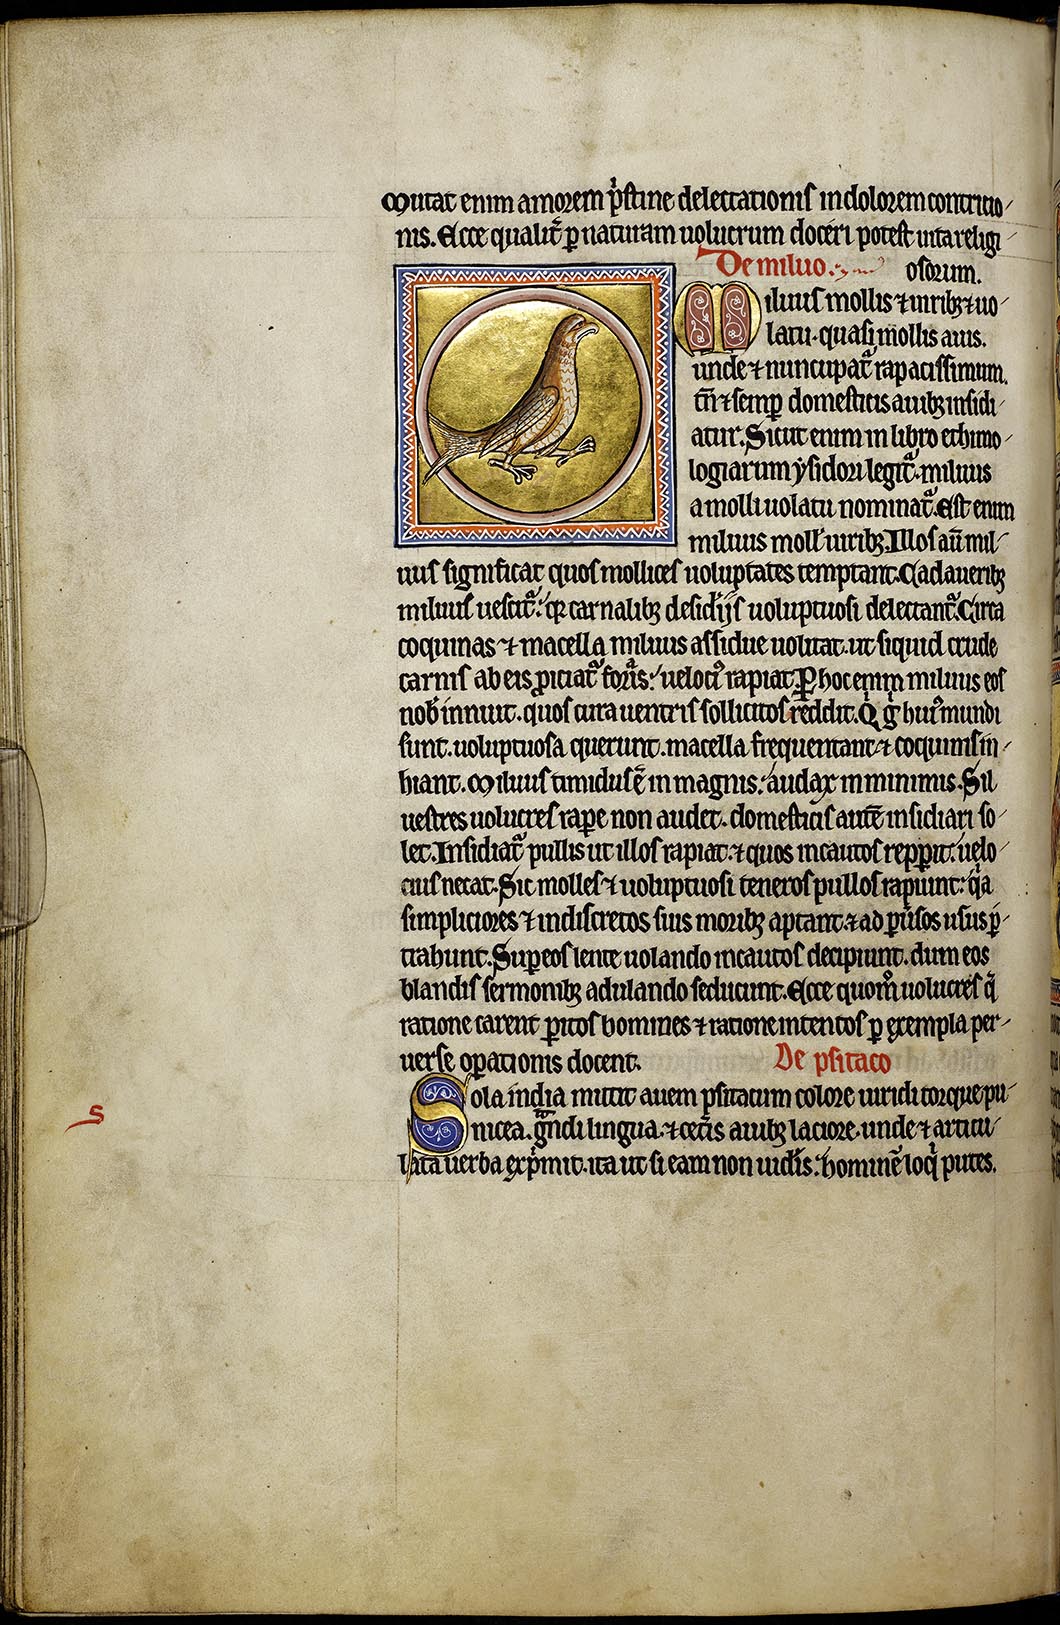 Mutat enim amorem p̍stine delectationis in dolorem contritio
nis. Ecce qualit̄ ꝑ naturam uolucrum doceri potest uita religi
De miluo. osorum.
Miluus mollis ⁊ uiribꝫ ⁊ uo
latu. quasi mollis auis.
unde ⁊ nuncupat᷑ rapacissimum.
tn̄ ⁊ semꝑ domesticis auibꝫ insidi
atur. Sicut enim in libro ethimo
logiarum ysidori legit᷑. miluus
a molli uolatu nominat᷑. Est enim
miluus moll' uiribꝫ. Illos aū mil
uus significat quos mollices uoluptates temptant. Cadaueribꝫ
miluus uescit᷑. qꝛ carnalibꝫ desid'ijs uoluptuosi delectant᷑. Circa
coquinas ⁊ macella miluus assidue uolitat. ut siquid crude
carnis ab eis ꝓiciat᷑ foris. uelociꝰ rapiat. Per hoc enim miluus eos
nob̄ innuit. quos cura uentris sollicitos reddit. Qⁱ g̊ huiꝰ mundi
sunt. uoluptuosa querunt. macella frequentant ⁊ coquinis in
hiant. Miluus timidus ē in magnis. audax in minimis. Sil
uestres uolucres raꝑe non audet. domesticis autē insidiari so
let. Insidiat᷑ pullis ut illos rapiat. ⁊ quos incautos repꝑit. uelo
cius necat. Sic molles ⁊ uoluptuosi teneros pullos rapiunt. qͣa
simpliciores ⁊ indiscretos suis moribꝫ aptant. ⁊ ad ꝑuersos usus ꝑ
trahunt. Suꝑ eos lente uolando incautos decipiunt. dum eos
blandis sermonibꝫ adulando seducunt. Ecce quom̊ uolucres qⁱ
ratione carent ꝑitos homines ⁊ ratione intentos ꝑ exempla per
uerse oꝑationis docent. De psitaco
Sola india mittit auem psitacum colore uiridi torque pu
nicea. gͣndi lingua. ⁊ cet̄is auibꝫ latiore. unde ⁊ articu
lata uerba exp̍mit. ita ut si eam non uid'is. hominē loqⁱ putes.
S